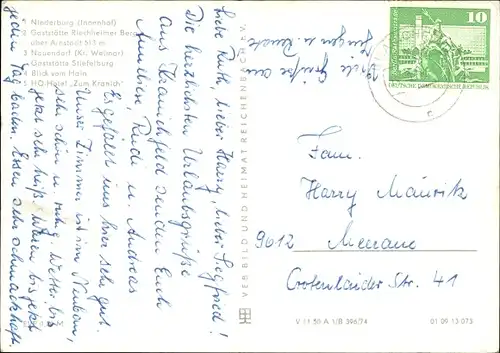 1 Niederburg (Innenhof)
2 Gaststätte Riechheimer Berg
über Arnstadt 513 m
3 Nauendorf (Kr. Weimar)
Gaststätte Stiefelburg
4 Blick vom Hain
5 HO-Hotel „Zum Kranich"
Liebe Ruth, lieber Harry, lieber Siegfried!
Die herzlichsten Urlaubsgrüße
aus Kranichfeld senden Euch
Annelies, Rudi u. Andreas
Es gefällt uns hier sehr gut.
Unser Zimmer ist im Neubau,
sehr schön u. ruhig. Wetter bis
jetzt sehr heiß, waren bis jetzt
jeden Tag baden. Essen sehr schmackhaft.
Viele Grüße an
Jürgen u.
VEB BILD UND HEIMAT REICHENBACH i. V.
10
DEUTSCHE DEMOKRATISCHE REPUBLIK
Fam.
Harry Mäurik
9612 Meerane
Crotenlaider Str. 41
V 11 50 A 1/B 396/74
01 09 13 073